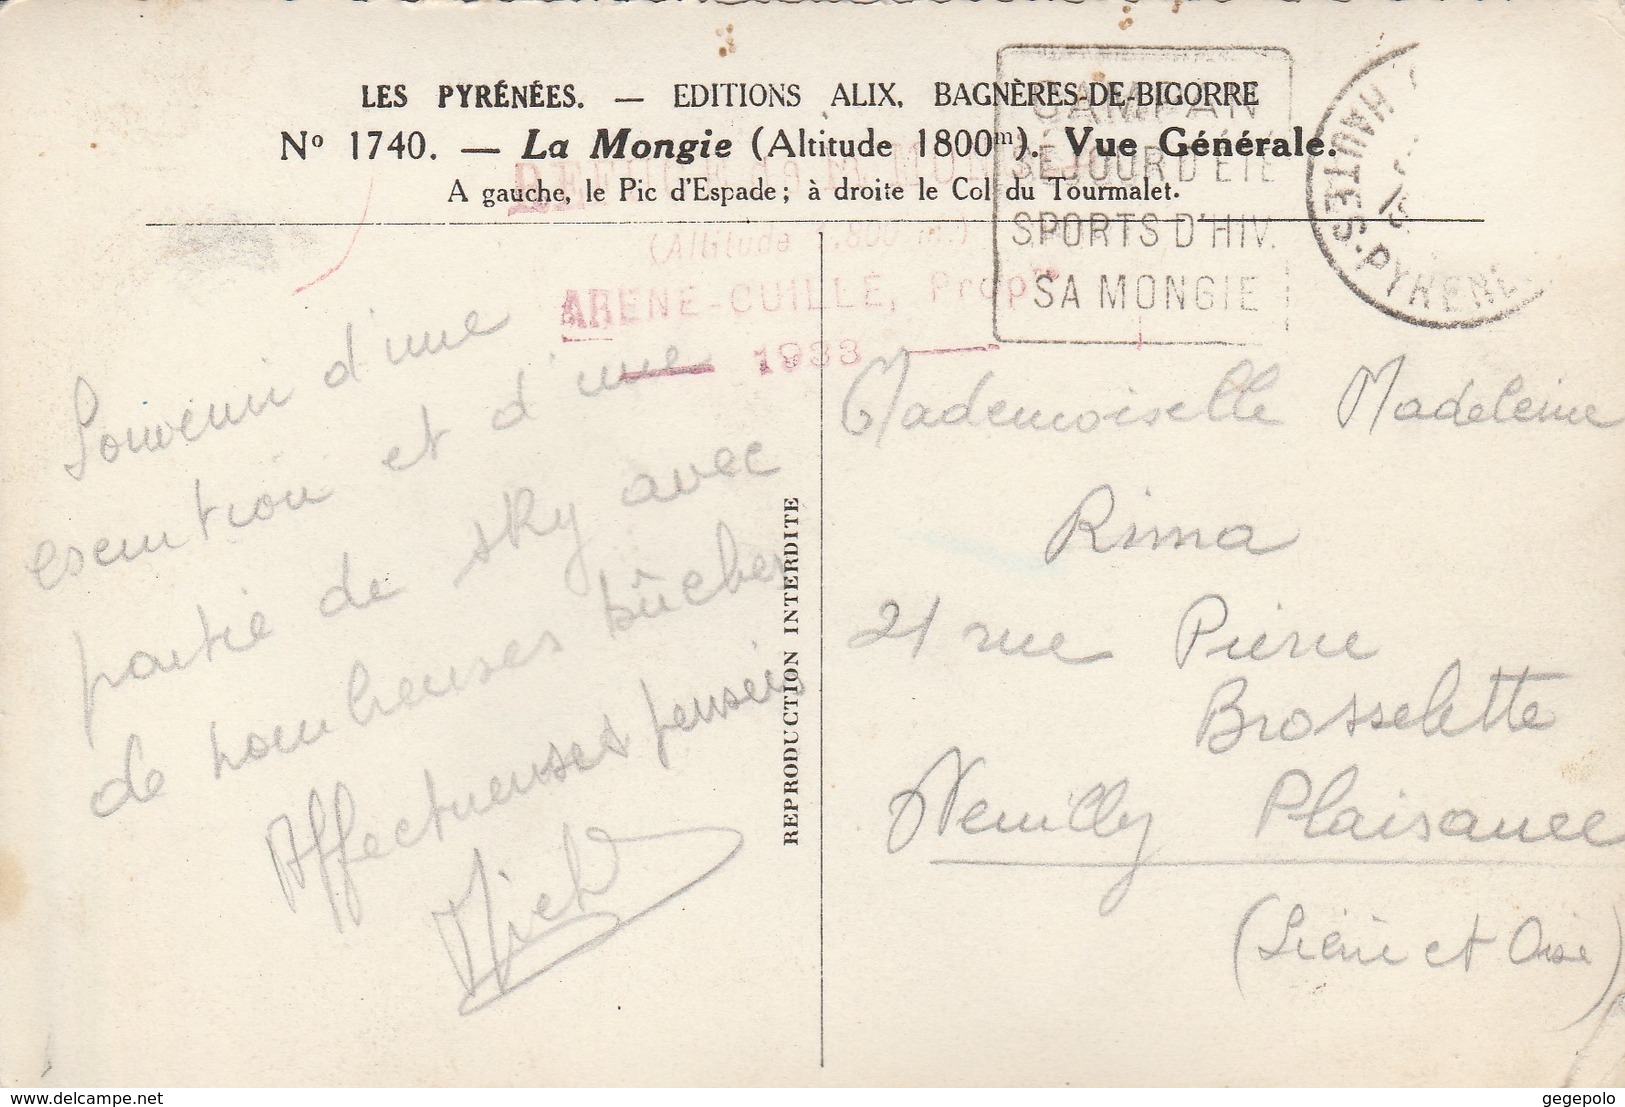 LES PYRÉNÉES. — EDITIONS ALIX, BAGNÈRES-DE-BIGORRE
Nº 1740. — La Mongie (Altitude 1800m). Vue Générale.
A gauche, le Pic d'Espade ; à droite le Col du Tourmalet.
CAMPAN
SÉJOUR D'ÉTÉ
SPORTS D'HIV.
SA MONGIE
HAUTES-PYRENE
(Altitude 1.800 m.)
ARENE-CUILLÉ, Propre
1933
Souvenir d'une
escurtion et d'une
partie de sky avec
de nombreuses bûches
Affectueuses pensées
REPRODUCTION INTERDITE
Mademoiselle Madeleine
Rima
21 rue Pierre
Brosselette
Neuilly Plaisance
(Seine et Oise)
delcampe.net
gegepolo